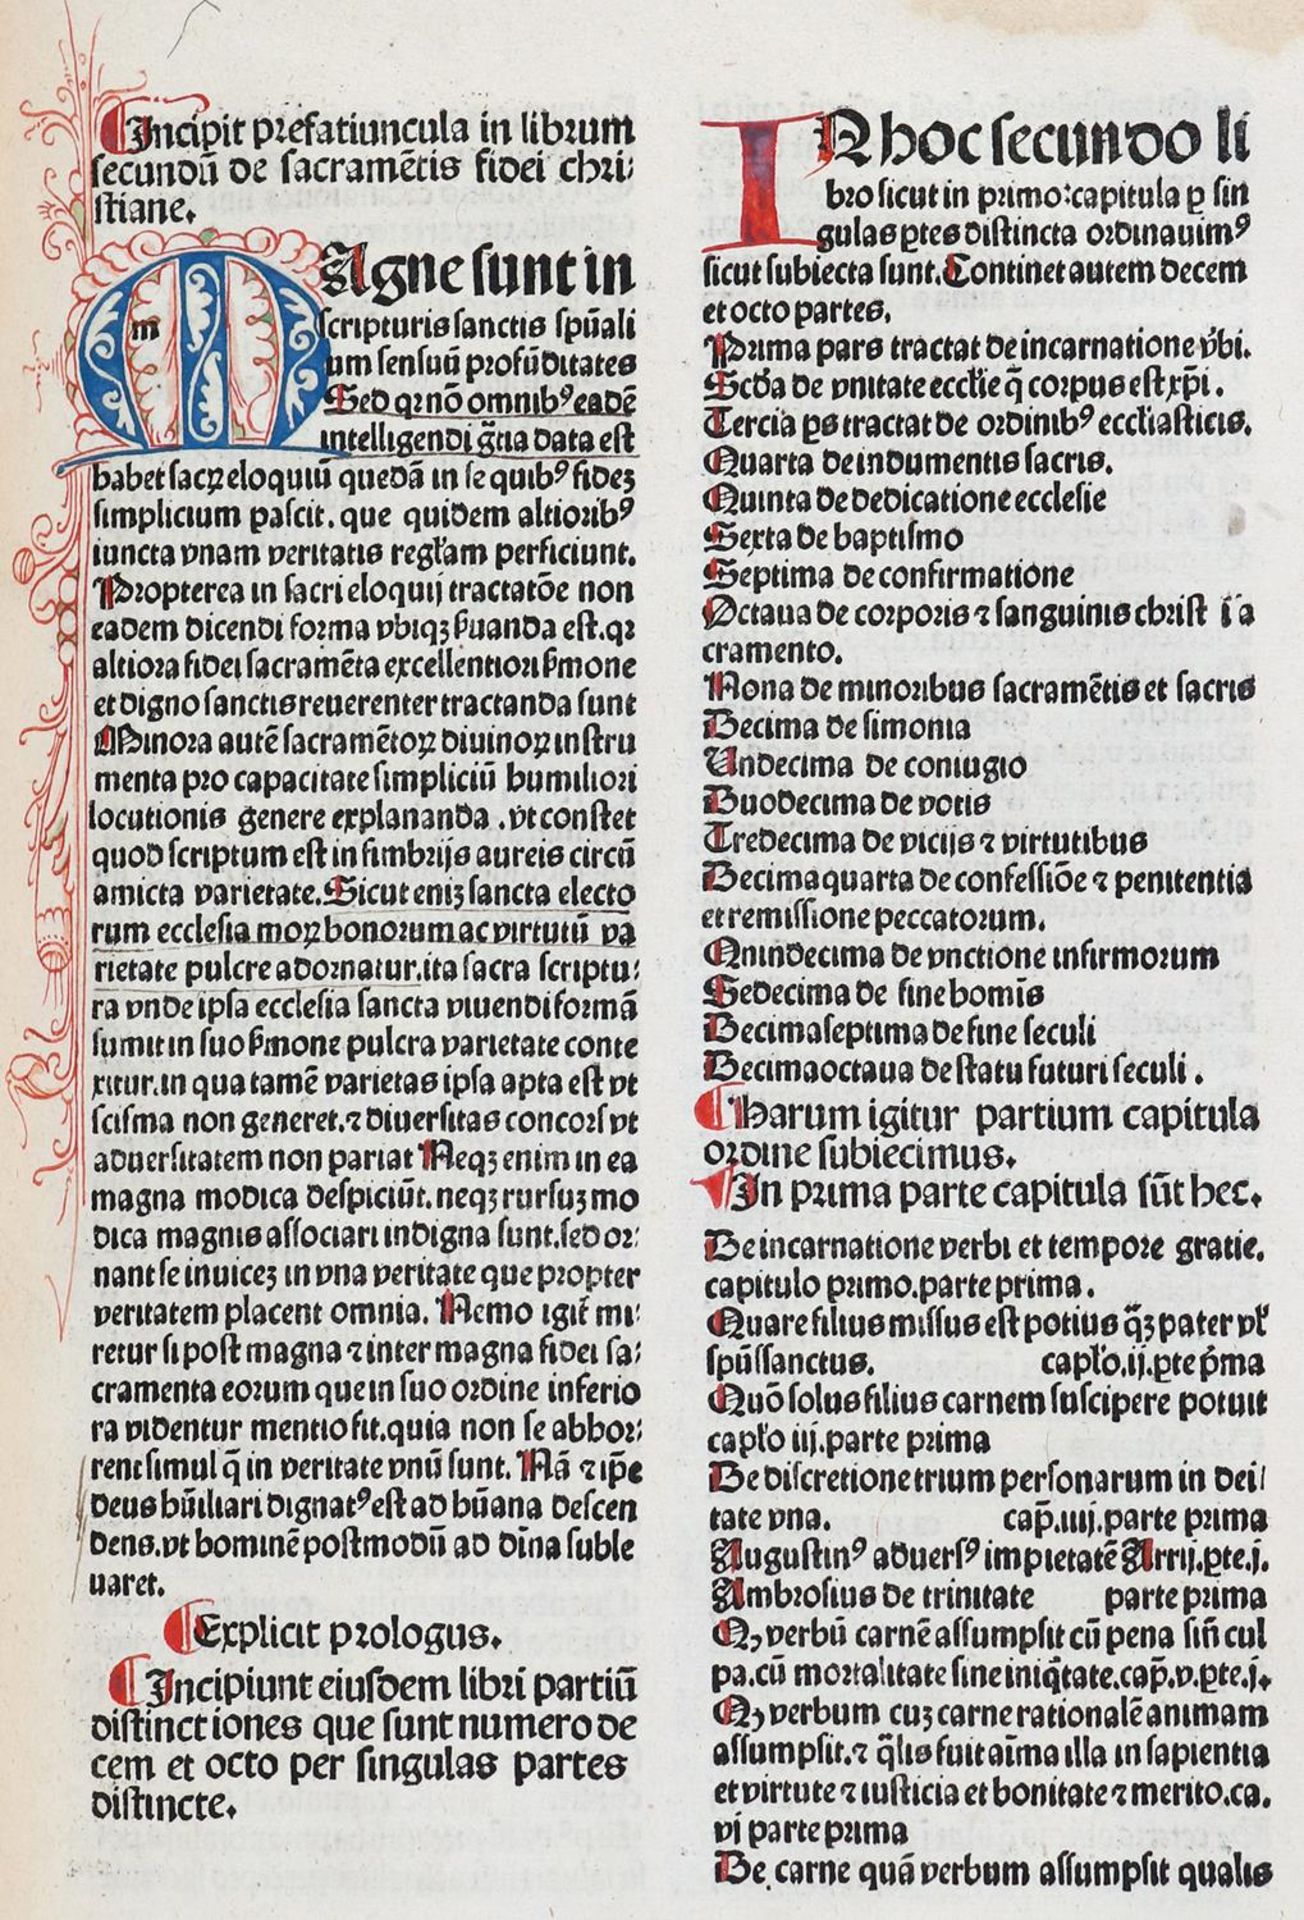 Incipit prefatiuncula in librum
secundū de sacramētis fidei chri⸗
stiane.
MAgne sunt in
scripturis sanctis spūali
um sensuū profūditates
Sed qꝛ nō omnibꝰ eadē
intelligendi gr̄tia data est
habet sacꝝ eloquiū quedā in se quibꝰ fidez
simplicium pascit. que quidem altioribꝰ
iuncta vnam veritatis regl̄am perficiunt.
Propterea in sacri eloquij tractatōe non
eadem dicendi forma vbiqꝫ ẜuanda est. qꝛ
altiora fidei sacramēta excellentiori ẜmone
et digno sanctis reuerenter tractanda sunt
Minora autē sacramētoꝝ diuinoꝝ instru
menta pro capacitate simpliciū humiliori
locutionis genere explananda .vt constet
quod scriptum est in fimbrijs aureis circū
amicta varietate. Sicut eniꝫ sancta electo
rum ecclesia moꝝ bonorum ac virtutū va
rietate pulcre adornatur. ita sacra scriptu⸗
ra vnde ipsa ecclesia sancta viuendi formā
sumit in suo ẜmone pulcra varietate conte
xitur. in qua tamē varietas ipsa apta est vt
scisma non generet. ⁊ diuersitas concors vt
aduersitatem non pariat Neqꝫ enim in ea
magna modica despiciūt. neqꝫ rursuꝫ mo
dica magnis associari indigna sunt. sed or⸗
nant se inuiceꝫ in vna veritate que propter
veritatem placent omnia. Nemo igit̄ mi⸗
retur si post magna ⁊ inter magna fidei sa⸗
cramenta eorum que in suo ordine inferio
ra videntur mentio fit. quia non se abhor⸗
rent simul q̄ in veritate vnū sunt. Nā ⁊ ip̄e
deus hūiliari dignatꝰ est ad hūana descen
dens. vt hominē postmodū ad diīna suble
uaret.
Explicit prologus.
Incipiunt eiusdem libri partiū
distinctiones que sunt numero de
cem et octo per singulas partes
distincte.
IN hoc secundo li
bro sicut in primo: capitula ꝑ sin
gulas ꝑtes distincta ordinauimꝰ
sicut subiecta sunt. Continet autem decem
et octo partes.
Prima pars tractat de incarnatione v̄bi.
Scd̄a de vnitate eccl̄ie q̄ corpus est xp̄i.
Tercia ꝑs tractat de ordinibꝰ eccl̄iasticis.
Quarta de indumentis sacris.
Quinta de dedicatione ecclesie
Sexta de baptismo
Septima de confirmatione
Octaua de corporis ⁊ sanguinis christ i sa
cramento.
Nona de minoribus sacramētis et sacris
Decima de simonia
Undecima de coniugio
Duodecima de votis
Tredecima de vicijs ⁊ virtutibus
Decimaquarta de confessiōe ⁊ penitentia
et remissione peccatorum.
Quindecima de vnctione infirmorum
Sedecima de fine homīs
Decimaseptima de fine seculi
Decimaoctaua de statu futuri seculi.
Harum igitur partium capitula
ordine subiecimus.
In prima parte capitula sūt hec.
De incarnatione verbi et tempore gratie.
capitulo primo. parte prima.
Quare filius missus est potius q̄ꝫ pater vl̄
spūssanctus. capl̄o. ij. ꝑte p̄ma
Quō solus filius carnem suscipere potuit
capl̄o iij. parte prima
De discretione trium personarum in dei⸗
tate vna. cap̄. iiij. parte prima
Augustinꝰ aduersꝰ impietatē Arrij. ꝑte. j.
Ambrosius de trinitate parte prima
Qꝙ verbū carnē assumpsit cū pena sin̄ cul
pa. cū mortalitate sine iniq̄tate. cap̄. v. ꝑte. j.
Qꝙ verbum cuꝫ carne rationalē animam
assumpsit. ⁊ q̄lis fuit aīma illa in sapientia
et virtute ⁊ iusticia et bonitate ⁊ merito. ca.
vj parte prima
De carne quā verbum assumpsit qualis